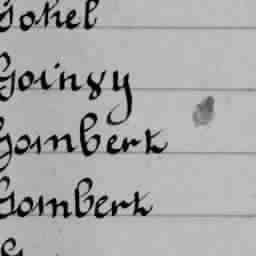 Gohel
Goingy
Gombert
Gombert